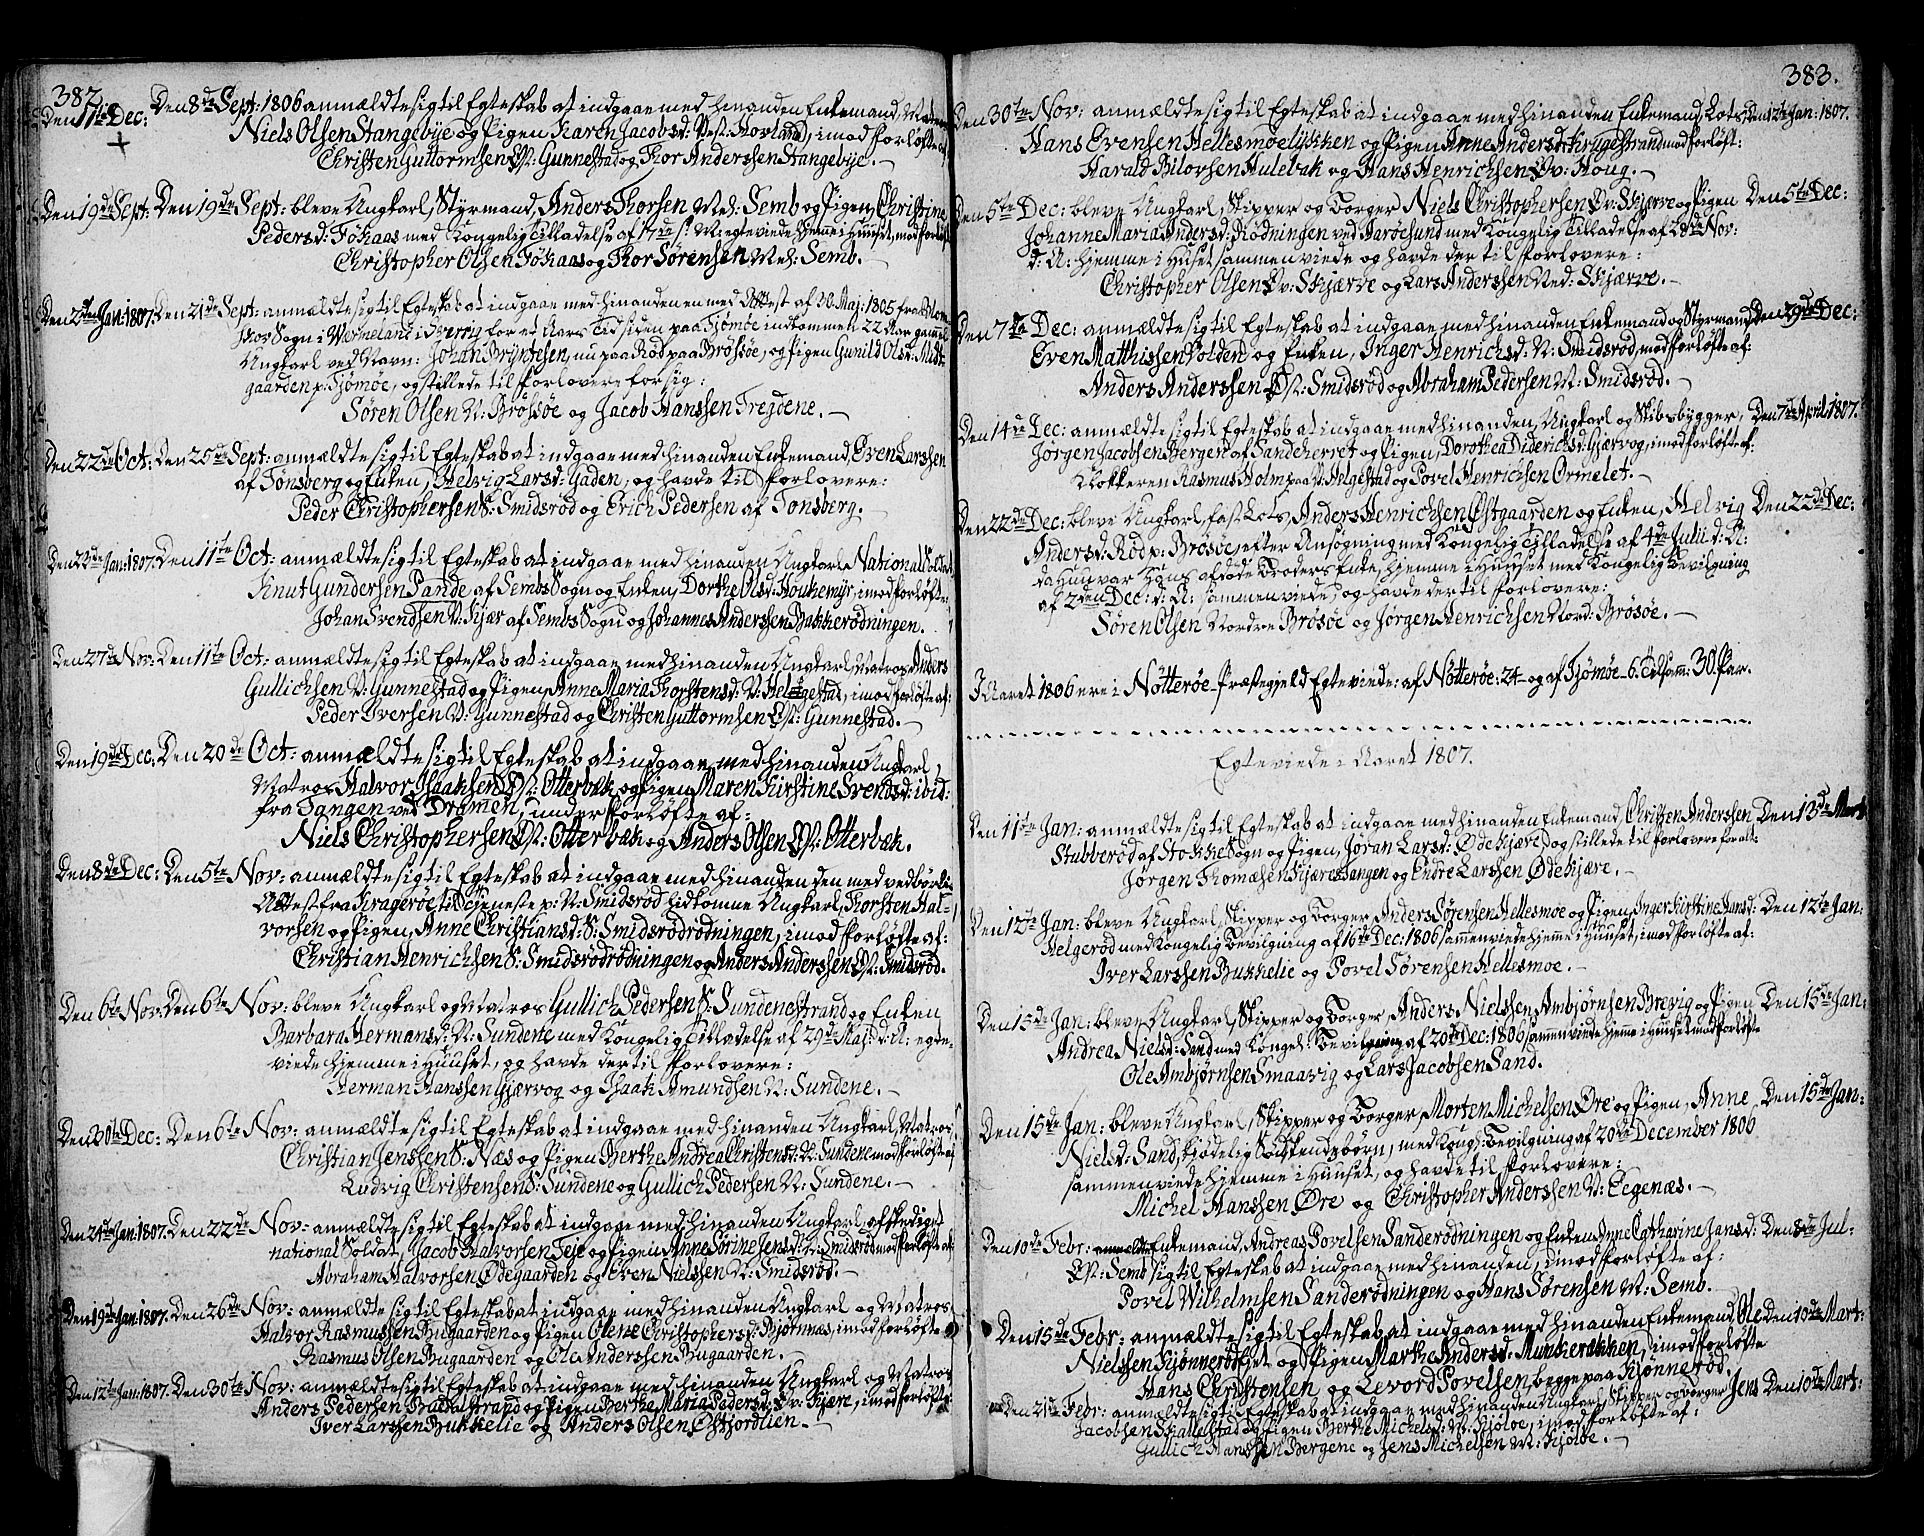 382.
Den 17de Dec: Den 8de Sept: 1806 anmældte sig til Egteskab at indgaae med hinanden Enkemand, Matros
+ Niels Olsen Stangebye og Pigen Karen Jacobsd: Vest: Hovland, imod Forløfte af
Christen Guttormsen Øst: Gunnestad og Thor Anderssen Stangebye. —
Den 19de Sept: Den 19de Sept: bleve Ungkarl, Styrmand, Anders Thorsen Mel: Semb og Pigen, Christine
Pedersd: Føhaas med Kongelig Tilladelse af 17de s: M: egteviede hjemme i Huuset, mod Forløfte
Christopher Olsen Føhaas og Thor Sørensen Mel: Semb. —
Den 2den Jan: 1807. Den 21de Sept: anmældte sig til Egteskab at indgaae med hinanden en med Attest af 20 Maj: 1805 fra
Sogn i Wermeland i Sverrig for et Aars Tid siden paa Tjømøe indkommen 22 Aar gammel
Ungkarl ved Navn: Johan Bryntesen, nu paa Rød paa Brøsøe, og Pigen Gunild Olsd: Midt-
gaarden p: Tjømøe, og stillede til Forlovere for sig:
Søren Olsen N: Brøsøe og Jacob Hanssen Trejdene. —
Den 22de Oct: Den 25de Sept: anmældte sig til Egteskab at indgaae med hinanden Enkemand, Even Larssen
af Tønsberg og Enken, Helvig Larsd: Gaden, og havde til Forlovere:
Peder Christophersen S: Smidsrød og Erich Pedersen af Tonsberg. —
Den 23de Jan: 1807. Den 11te Oct: anmældte sig til Egteskab at indgaae med hinanden Ungkarl National Soldat,
Knut Gundersen Sande af Sembs Sogn og Enken, Dorthe Olsd: Houkemyr, imod Forløfte:
Johan Svendsen N: Kjær af Sembs Sogn og Johannes Anderssen Bakkerødningen.
Den 27de Nov: Den 11te Oct: anmældte sig til Egteskab at indgaae med hinanden Ungkarl, Matros, Anders
Gullichsen N: Gunnestad og Pigen Anne Maria Thorstensd: N: Helgestad, imod Forløfte af:
Peder Iversen N: Gunnestad og Christen Guttormsen Øst: Gunnestad. —
Den 19de Dec: Den 20de Oct: anmældte sig til Egteskab at indgaae med hinanden Ungkarl,
Matros Halvor Isaaksen Øst: Otterbek og Pigen Maren Kirstine Svendsd: ibid:
fra Tangen ved Dramen, under Forløfte af:
Niels Christophersen Øst: Otterbek og Anders Olsen Øst: Otterbek.
Den 8de Dec: Den 5te Nov: anmældte sig til Egteskab at indgaae med hinanden den med vedbørlig
Attest fra Kragerøe til Tjeneste p: N: Smidsrød hidkomne Ungkarl, Thorsten Hal-
vorsen og Pigen, Anne Christiansd: S: Smidsrødrødningen, imod Forløfte af:
Christian Henrichsen S: Smidsrødrødningen og Anders Anderssen Øst: Smidsrød.
Den 6te Nov: Den 6te Nov: bleve Ungkarl og Matros Gullich Pedersen S: Sundenestrand og Enken
Barbara Hermansd: N: Sundene med Kongelig Tilladelse af 29de Maj: d: A: egte-
viede hjemme i Huuset, og havde der til Forlovere:
Herman Hanssen Gjærvog og Isaak Amundsen N: Sundene. —
Den 30te Dec: Den 6te Nov: anmældte sig til Egteskab at indgaae med hinanden Ungkarl, Matros
Christian Jenssen S: Næs og Pigen Berthe Andrea Christensd: N: Sundene mod Forløfte af
Ludvig Christensen S: Sundene og Gullich Pedersen N: Sundene. —
Den 21de Jan: 1807. Den 22de Nov: anmældte sig til Egteskab at indgaae med hinanden Ungkarl, afskediget
national Soldat, Jacob Halvorsen Teje og Pigen Anne Sørine Jensd: N: Smidsrød mod Forløfte af
Abraham Halvorsen Ødegaarden og Even Nielssen N: Smidsrød. —
Den 19de Jan: 1807. Den 26de Nov: anmældte sig til Egteskab at indgaae med hinanden Ungkarl og Matros
Halvor Rasmussen Bugaarden og Pigen Olene Christophersd: Bjørnnæs, imod Forløfte
Rasmus Olsen Bugaarden og Ole Anderssen Bugaarden. —
Den 12te Jan: 1807. Den 30te Nov: anmældte sig til Egteskab at indgaae med hinanden Ungkarl og Matros
Anders Pedersen Buestrand og Pigen Berthe Maria Pedersd: Øv: Kjære, imod Forløfte
Iver Larssen Bukkelie og Anders Olsen Østfjordlien. —
383.
Den 30te Nov: anmældte sig til Egteskab at indgaae med hinanden Enkemand, Lots, Den 12te Jan: 1807.
Hans Evensen Hellesmoelykken og Pigen Anne Andersd: Krugestrand mod Forløft:
Harald Bilovsen Hulebak og Hans Henrichsen Øv: Houg. —
Den 5te Dec: bleve Ungkarl, Skipper og Borger Niels Christophersen Øv: Skjærve og Pigen Den 5te Dec:
Johanne Maria Andersd: Rødningen ved Aarøesund med Kongelig Tilladelse af 28de Nov:
d: A: hjemme i Huset sammenviede og havde der til Forlovere:
Christopher Olsen Øv: Skjærve og Lars Anderssen Ned: Skjærve. —
Den 7de Dec: anmældte sig til Egteskab at indgaae med hinanden Enkemand og Styrmand Den 29de Dec:
Even Matthissen Holden og Enken, Inger Henrichsd: N: Smidsrød, mod Forløfte af:
Anders Anderssen Øst: Smidsrød og Abraham Pedersen N: Smidsrød. —
Den 14de Dec: anmældte sig til Egteskab at indgaae med hinanden, Ungkarl og Skibsbygger, Den 7de April: 1807.
Jørgen Jacobsen Bergen af Sandeherret og Pigen, Dorothea Diderichsd: Gjærvog, imod Forløfte af:
Klokkeren Rasmus Holm paa N: Helgestad og Povel Henrichsen Ormelet. —
Den 22de Dec: bleve Ungkarl, fast Lots, Anders Henrichsen Østgaarden og Enken, Helvig Den 22de Dec:
Andersd: Rød p: Brøsøe, efter Ansøgning med Kongelig Tilladelse af 4de Julii d: A:
da Hun var Hans afdøde Broders Enke, hjemme i Huuset med Kongelig Bevilgning
af 2den Dec: d: A: sammenviede, og havde der til Forlovere:
Søren Olsen Nordre Brøsøe og Jørgen Henrichsen Nord: Brøsøe. —
I Aaret 1806 ere i Nøtterøe Præstegjeld Egteviede: af Nøtterøe: 24 — og af Tjømøe — 6. Tilsam: 30 Par.
Egteviede i Aaret 1807.
Den 11te Jan: anmældte sig til Egteskab at indgaae med hinanden Enkemand, Christen Anderssen Den 13de Mart:
Stubberød af Stokke Sogn og Pigen, Jøran Larsd: Ødekjære, og stillede til Forlovere for alt:
Jørgen Thomæsen Kjæres Tangen og Endre Larssen Ødekjære. —
Den 12te Jan: bleve Ungkarl, Skipper og Borger Anders Sørensen Hellesmoe og Pigen, Inger Kirstine Hansd: Den 12te Jan:
Helgerød med Kongelig Bevilgning af 16de Dec: 1806 sammenviede hjemme i Huuset, imod Forløfte af:
Iver Larssen Bukkelie og Povel Sørensen Hellesmoe. —
Den 15de Jan: bleve Ungkarl, Skipper og Borger, Anders Nielssen Ambjørnsen Brevig og Pigen Den 15de Jan:
Andrea Nielsd: Sand med Kongel: Bevilgning af 20de Dec: 1806 sammenviede hjemme i Huuset mod Forløfte
Ole Ambjørnsen Smaavig og Lars Jacobsen Sand.
Den 15de Jan: bleve Ungkarl, Skipper og Borger, Morten Michelsen Øre og Pigen, Anne Den 15de Jan:
Nielsd: Sand, kjødelig Sødskendebørn, med Kong: Bevilgning af 20de December 1806
sammenviede hjemme i Huuset, og havde til Forlovere:
Michel Hanssen Øre og Christopher Anderssen N: Eegenæs. —
Den 10de Febr: anmældte Enkemand, Andreas Povelsen Sanderødningen og Enken Anne Catharine Jansd: Den 8de Jul:
Øst: Semb sig til Egteskab at indgaae med hinanden, imod Forløfte af:
Povel Wilhelmsen Sanderødningen og Hans Sørensen N: Semb.
Den 15de Febr: anmældte sig til Egteskab at indgaae med hinanden Enkemand, Ole Den 10de Mart:
Nielssen Kjønnerød og Pigen Marthe Andersd: Munkerekken, imod Forløfte
Hans Christensen og Levord Povelsen, begge paa Kjønnerød.
Den 21de Febr: anmældte sig til Egteskab at indgaae med hinanden Ungkarl, Skipper og Borger Jens Den 10de Mart:
Jacobsen Skallestad og Pigen Berthe Michelsd: N: Kjøløe, imod Forløfte af:
Gullich Hanssen Bergene og Jens Michelsen N: Kjøløe. —